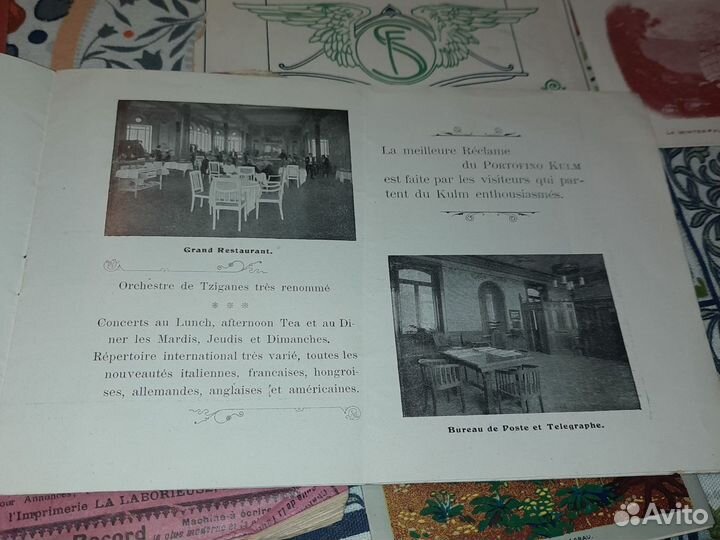 LA WINTER
Grand Restaurant.
Orchestre de Tziganes très renommé
Concerts au Lunch, afternoon Tea et au Di-
ner les Mardis, Jeudis et Dimanches.
Répertoire international très varié, toutes les
nouveautés italiennes, francaises, hongroi-
ses, allemandes, anglaises et américaines.
La meilleure Réclame
du PORTOFINO KULM
est faite par les visiteurs qui par-
tent du Kulm enthousiasmés.
Bureau de Poste et Telegraphe.
our Annonces,
l'Imprimerie LA LABORIEUSE
Machine à écrire
Record
la plus moderne et
Avito